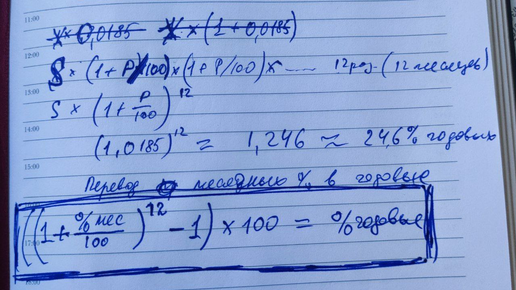 11:00
x × 0,0185 x × (1 + 0,0185)
12:00
S × (1 + P/100) × (1 + P/100) × ...... 12 раз (12 месяцев)
13:00
S × (1 + P/100)^12
14:00
(1,0185)^12 = 1,246 ≈ 24,6% годовых
15:00
Перевод месячных % в годовые
((1 + % мес/100)^12 - 1) × 100 = % годовые
17:00